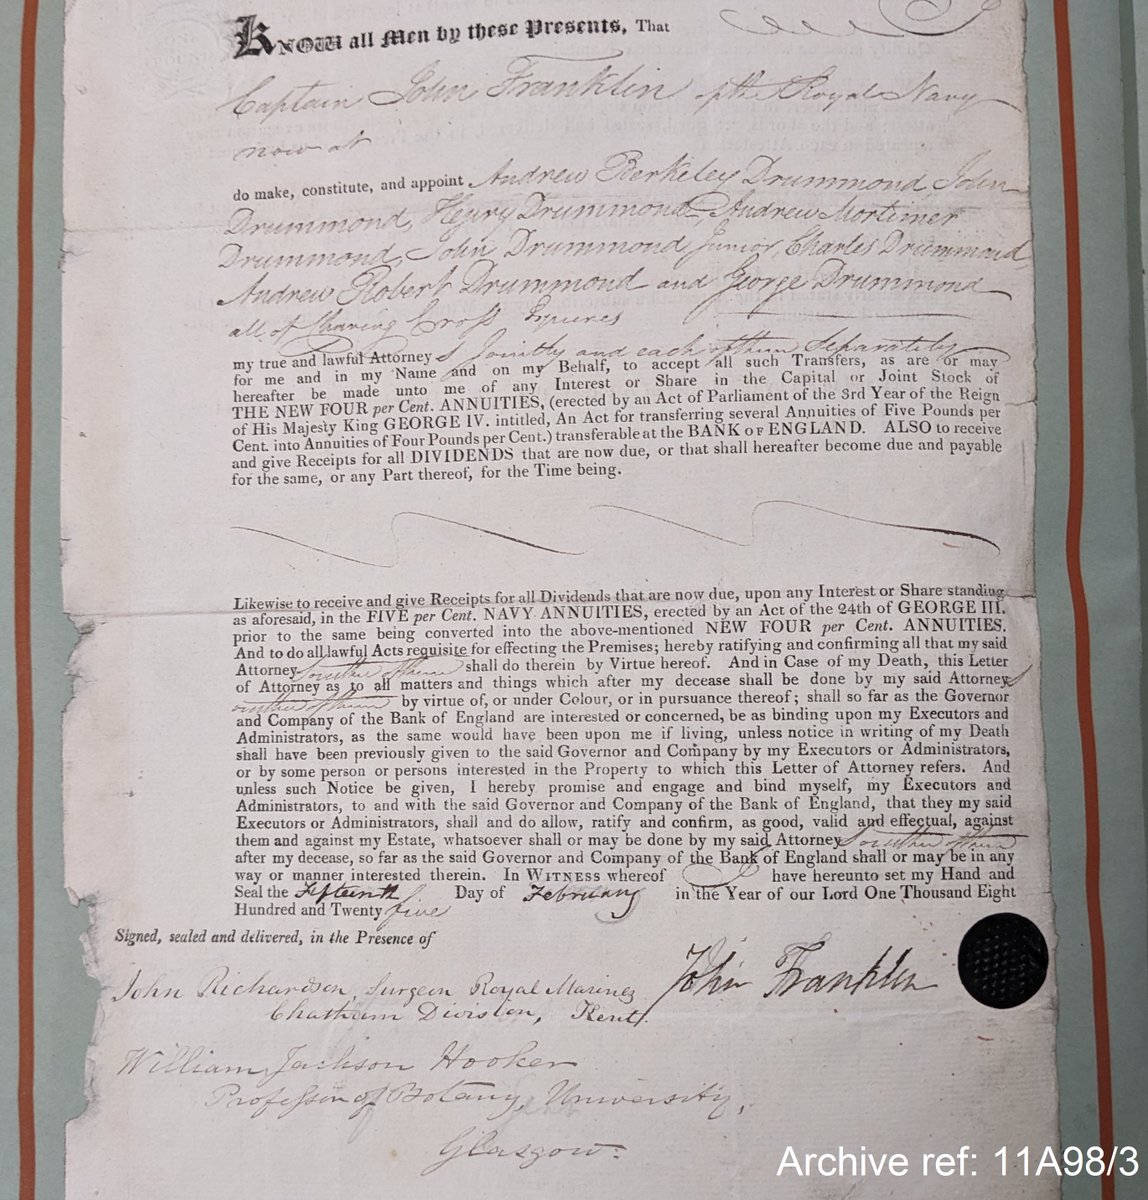 KNOW all Men by these Presents, That
Captain John Franklin of the Royal Navy
now at
do make, constitute, and appoint Andrew Berkeley Drummond, John
Drummond, Henry Drummond, Andrew Mortimer
Drummond, John Drummond Junior, Charles Drummond,
Andrew Robert Drummond and George Drummond
all of Charing Cross Esquires
my true and lawful Attorneys Jointly and each of them Separately
for me and in my Name and on my Behalf, to accept all such Transfers, as are or may
hereafter be made unto me of any Interest or Share in the Capital or Joint Stock of
THE NEW FOUR per Cent. ANNUITIES, (erected by an Act of Parliament of the 3rd Year of the Reign
of His Majesty King GEORGE IV. intitled, An Act for transferring several Annuities of Five Pounds per
Cent. into Annuities of Four Pounds per Cent.) transferable at the BANK OF ENGLAND. ALSO to receive
and give Receipts for all DIVIDENDS that are now due, or that shall hereafter become due and payable
for the same, or any Part thereof, for the Time being.
Likewise to receive and give Receipts for all Dividends that are now due, upon any Interest or Share standing
as aforesaid, in the FIVE per Cent. NAVY ANNUITIES, erected by an Act of the 24th of GEORGE III.
prior to the same being converted into the above-mentioned NEW FOUR per Cent. ANNUITIES.
And to do all lawful Acts requisite for effecting the Premises; hereby ratifying and confirming all that my said
Attorneys or either of them shall do therein by Virtue hereof. And in Case of my Death, this Letter
of Attorney as to all matters and things which after my decease shall be done by my said Attorneys
or either of them by virtue of, or under Colour, or in pursuance thereof; shall so far as the Governor
and Company of the Bank of England are interested or concerned, be as binding upon my Executors and
Administrators, as the same would have been upon me if living, unless notice in writing of my Death
shall have been previously given to the said Governor and Company by my Executors or Administrators,
or by some person or persons interested in the Property to which this Letter of Attorney refers. And
unless such Notice be given, I hereby promise and engage and bind myself, my Executors and
Administrators, to and with the said Governor and Company of the Bank of England, that they my said
Executors or Administrators, shall and do allow, ratify and confirm, as good, valid and effectual, against
them and against my Estate, whatsoever shall or may be done by my said Attorneys or either of them
after my decease, so far as the said Governor and Company of the Bank of England shall or may be in any
way or manner interested therein. In WITNESS whereof I have hereunto set my Hand and
Seal the Fifteenth Day of February in the Year of our Lord One Thousand Eight
Hundred and Twenty five
Signed, sealed and delivered, in the Presence of
John Franklin
John Richardson Surgeon Royal Marines
Chatham Division, Kent.
William Jackson Hooker
Professor of Botany, University,
Glasgow.
Archive ref: 11A98/3